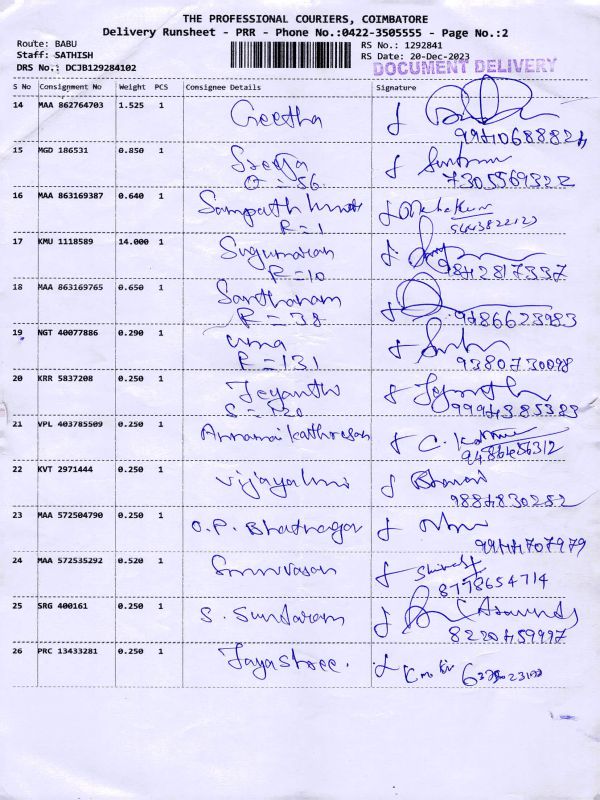 THE PROFESSIONAL COURIERS, COIMBATORE
Delivery Runsheet - PRR - Phone No.:0422-3505555 - Page No.:2
Route: BABU
Staff: SATHISH
DRS No.: DCJB129284102
RS No.: 1292841
RS Date: 20-Dec-2023
DOCUMENT DELIVERY
S No Consignment No Weight PCS Consignee Details Signature
14 MAA 862764703 1.525 1 Geetha
9940688824
15 MGD 186531 0.850 1
7305569322
16 MAA 863169387 0.640 1
R=1
17 KMU 1118589 14.000 1 Sugumaran
R=10 9842817337
18 MAA 863169765 0.650 1 Santhanam
R=38 9486623983
19 NGT 40077886 0.290 1 uma
R=131 9380730098
20 KRR 5837208 0.250 1 Jeyanthi
9994385383
21 VPL 403785509 0.250 1
9486456312
22 KVT 2971444 0.250 1
9884830282
23 MAA 572504790 0.250 1 O.P. Bhatnagar
9944707979
24 MAA 572535292 0.520 1 Srinivasan
8778654714
25 SRG 400161 0.250 1 S. Sundaram
8220459997
26 PRC 13433281 0.250 1 Jayashree.